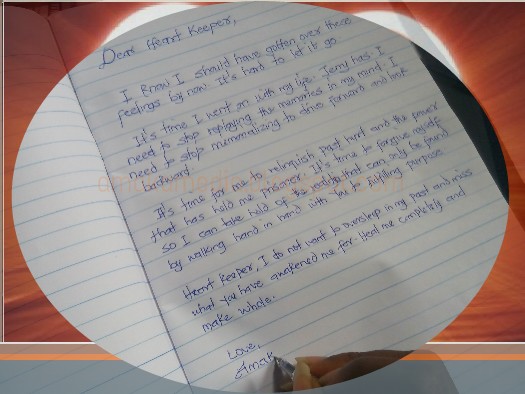 Dear Heart Keeper,
I know I should have gotten over these
feelings by now. It's hard to let it go
It's time I went on with my life. Jerry has. I
need to stop replaying the memories in my mind. I
need to stop memorializing to drive forward and not
backward.
It's time for me to relinquish past hurt and the power
that has held me prisoner. It's time to forgive myself
so I can take hold of the that can only be found
by walking hand in hand with but a fulfilling purpose
Heart Keeper, I do not want to oversleep in my past and miss
what you have awakened me for. Heal me completely and
make whole.
Love,
Amak